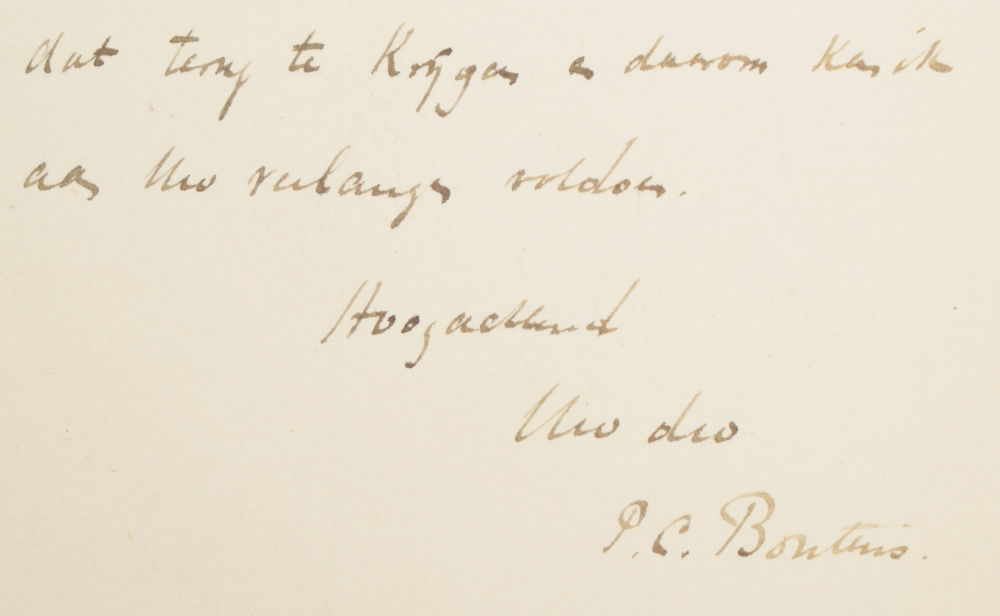 dat terug te krijgen en daarom kan ik
aan Uw verlangen voldoen.
Hoogachtend
Uw dw
P.C. Boutens.